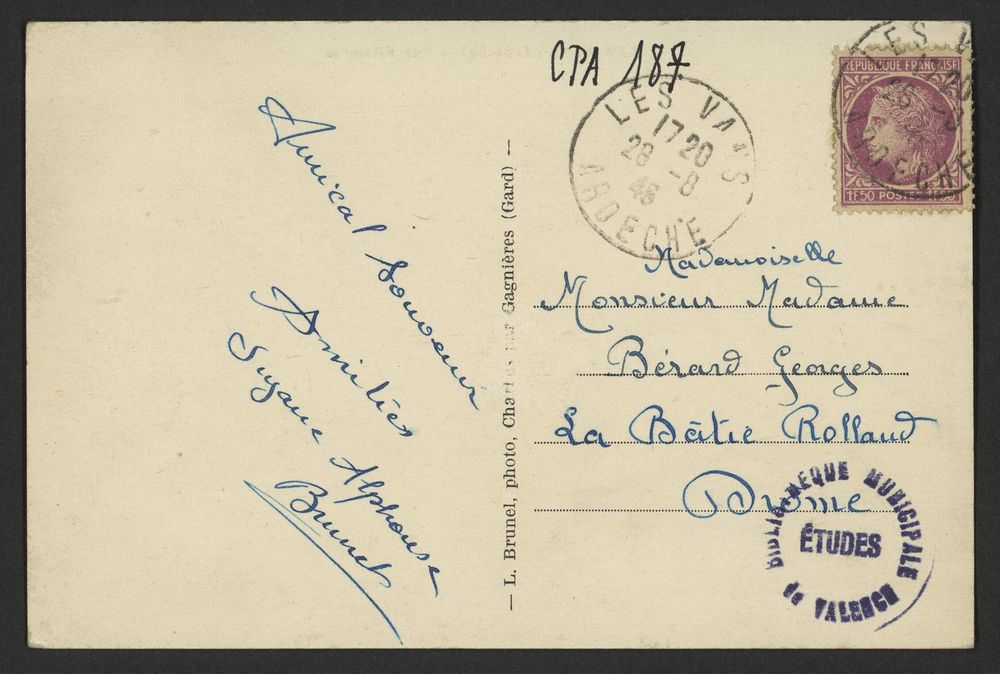 CPA 187
LES VANS
17 20
28 -8
46
ARDECHE
REPUBLIQUE FRANÇAISE
1F50 POSTES
Amical Souvenir
Amitiés
Suzane Alphonse
Brunet
— L. Brunel, photo, Gagnières (Gard) —
Mademoiselle
Monsieur Madame
Bérard Georges
La Bâtie Rolland
Drôme
BIBLIOTHÈQUE MUNICIPALE
ÉTUDES
de VALENCE